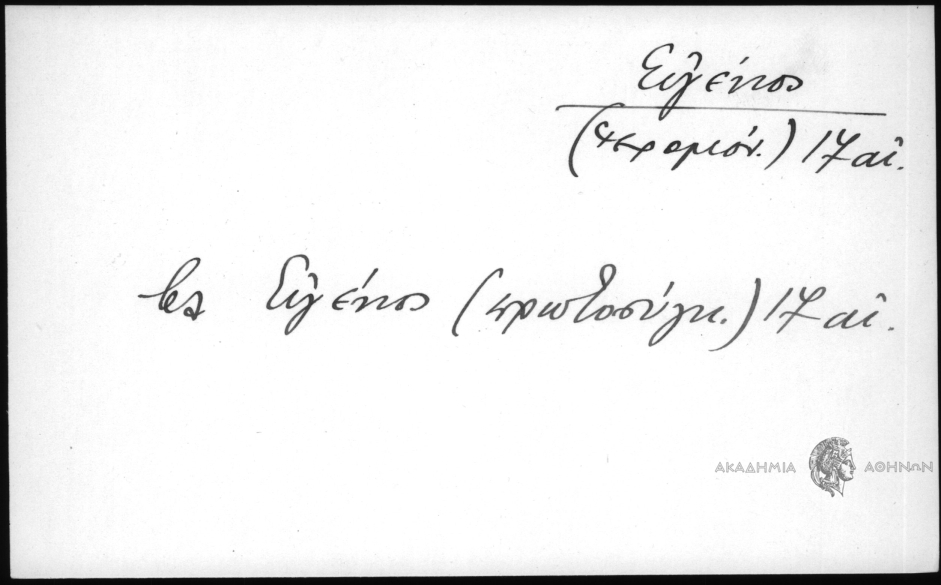 Εὐγένιος
(ἱερομόν.) 17 αἰ.
βλ Εὐγένιος (πρωτοσύγκ.) 17 αἰ.
ΑΚΑΔΗΜΙΑ ΑΘΗΝΩΝ